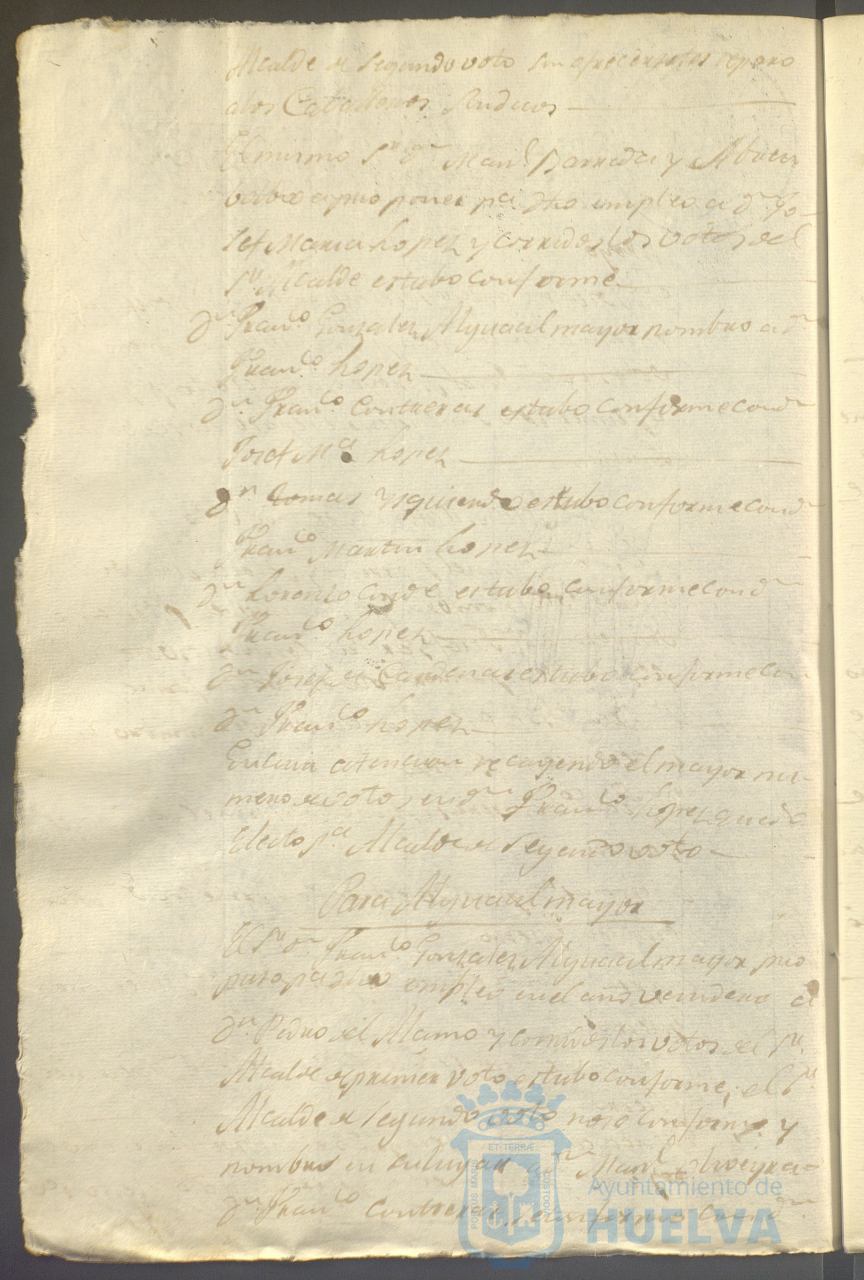 Alcalde de segundo voto sin ofrecerseles reparo
a los Caballeros Sindicos
El mismo Sr dn Manl Barreda y
bolbio a proponer pa dho empleo a dn Jo-
sef Maria Lopez y corridos los votos del
Sr Alcalde estubo conforme
dn Franco Gonzalez Alguacil mayor nombro a dn
Franco Lopez
dn Franco Contreras estubo conforme con dn
Josef Ma Lopez
dn Tomas Ysquierdo estubo conforme con dn
Franco Martin Lopez
dn Lorenzo Conde estubo conforme con dn
Franco Lopez
dn Josef de Cardenas estubo conforme con
dn Franco Lopez
En cuia atencion recayendo el mayor nu-
mero de votos en dn Franco Lopez quedo
electo pa Alcalde de Segundo voto
Para Alguacil mayor
El Sr dn Franco Gonzalez Alguacil mayor pro
puso pa dho empleo en el año venidero a
dn Pedro del Alamo y corridos los votos del Sr
Alcalde de primer voto estubo conforme, el Sr
Alcalde de segundo voto no se conformo y
nombro en su lugar a dn Manl
dn Franco Contreras
ET TERRÆ
PORTUS MARIS
CUSTODESCO
Ayuntamiento de
HUELVA